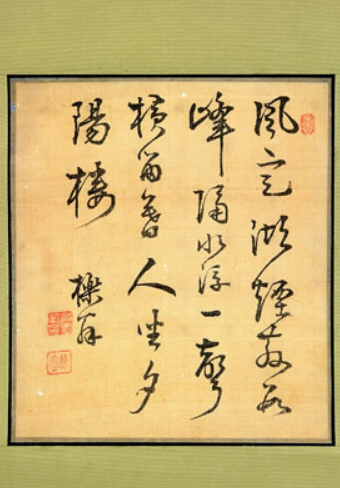 風定湖煙散數
峰隔水浮一聲
横笛人坐夕
陽樓
櫟翁